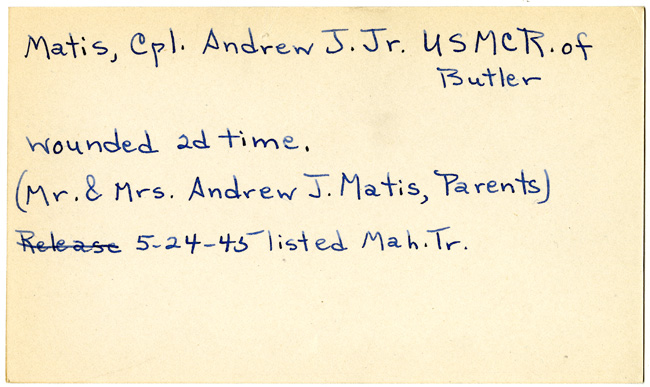 Matis, Cpl. Andrew J. Jr. USMCR. of
Butler
wounded 2d time.
(Mr. & Mrs. Andrew J. Matis, Parents)
Release 5-24-45 listed Mah. Tr.